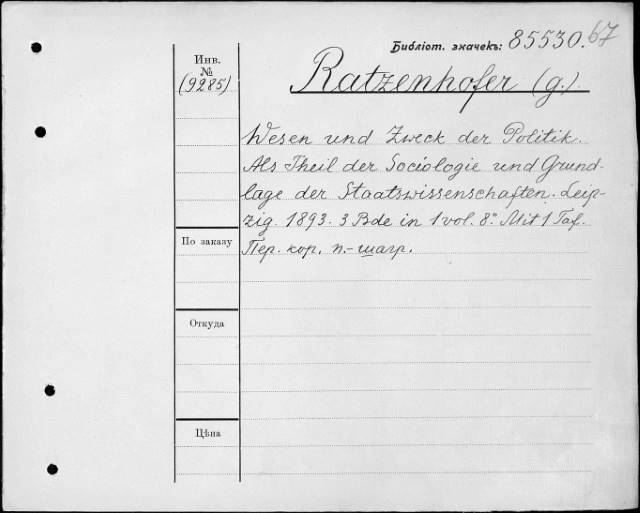 Библіот. значекъ: 85530.67
Инв.
№
(9285)
Ratzenhofer (G.).
Wesen und Zweck der Politik.
Als Theil der Sociologie und Grund-
lage der Staatswissenschaften. Leip-
zig. 1893. 3 Bde in 1 vol. 8° Mit 1 Taf.
Пер. кор. п.-шагр.
По заказу
Откуда
Цѣна